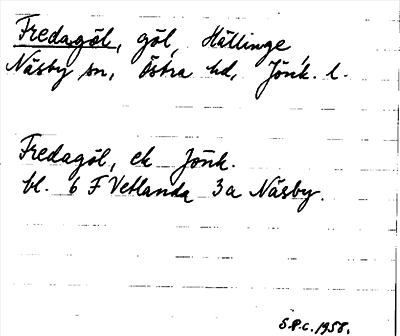 Fredagöl, göl, Hällinge,
Näsby sn, Östra hd, Jönk. l.
Fredagöl, ek Jönk.
bl. 6 F Vetlanda 3a Näsby.
S.P.C. 1958.